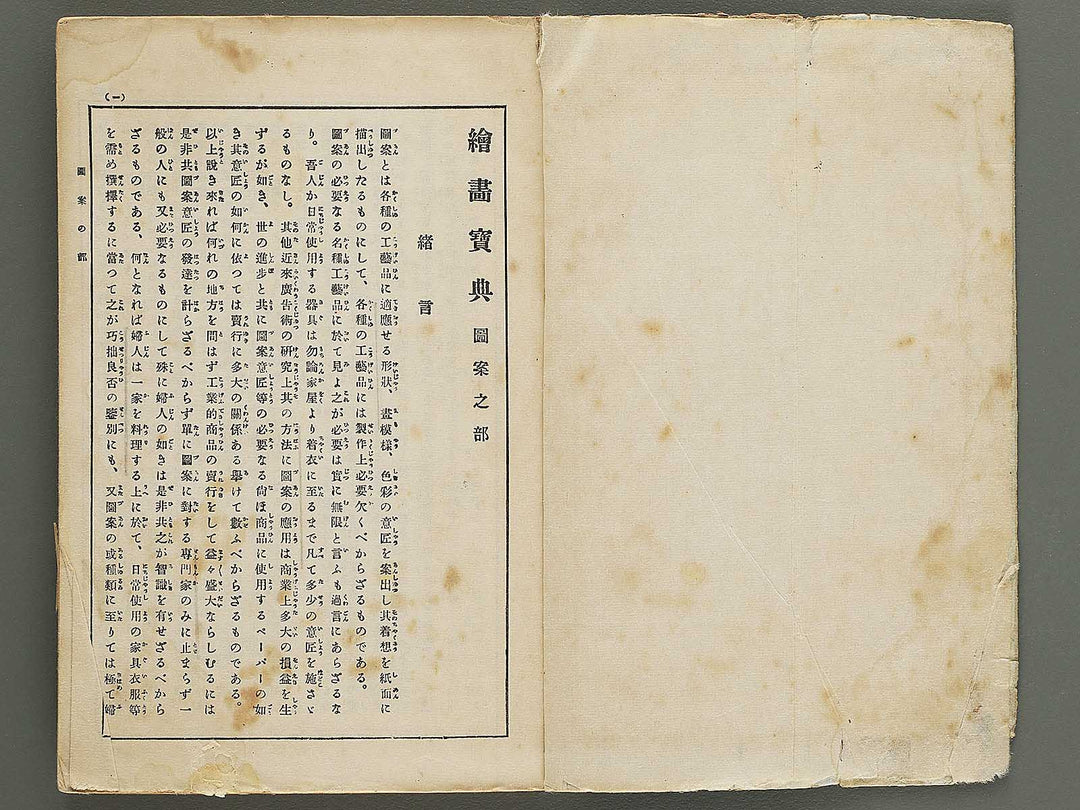 繪畫寶典圖案之部
緒言
圖案とは各種の工藝品に適應せる形狀、畫模樣、色彩の意匠を案出し其着想を紙面に
描出したるものにして、各種の工藝品には製作上必要欠くべからざるものである。
圖案の必要なる各種工藝品に於て見よ之が必要は實に無限と言ふも過言にあらざるな
り。吾人か日常使用する器具は勿論家屋より着衣に至るまで凡て多少の意匠を施さゞ
るものなし。其他近來廣告術の研究上其の方法に圖案の應用は商業上多大の損益を生
ずるが如き、世の進步と共に圖案意匠等の必要なる尙ほ商品に使用するペーパーの如
き其意匠の如何に依つては賣行に多大の關係ある擧けて數ふべからざるものである。
以上說き來れば何れの地方を問はず工業的商品の賣行をして益々盛大ならしむるには
是非共圖案意匠の發達を計らざるべからず單に圖案に對する專門家のみに止まらず一
般の人にも又必要なるものにして殊に婦人の如きは是非共之が智識を有せざるべから
ざるものである、何となれば婦人は一家を料理する上に於て、日常使用の家具衣服等
を需め撰擇するに當つて之が巧拙良否の鑒別にも、又圖案の或種類に至りては極て婦
圖案の部
(一)